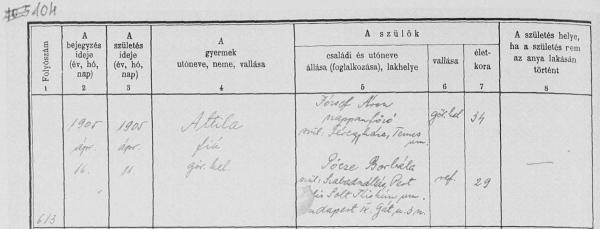 5404
Folyószám
A bejegyzés ideje (év, hó, nap)
A születés ideje (év, hó, nap)
A gyermek utóneve, neme, vallása
A szülők
családi és utóneve állása (foglalkozása), lakhelye
vallása
életkora
A születés helye, ha a születés nem az anya lakásán történt
1 2 3 4 5 6 7 8
1905 ápr. 16.
1905 ápr. 11.
Attila
fiú
gör. kel.
József Áron
szappanfőző
szül: Temes
gör. kel
34
Pőcze Borbála
szül: Szabadszállás, Pest
Solt Kiskún vm.
Budapest IX. Gát u. 3. sz.
ref.
29
613